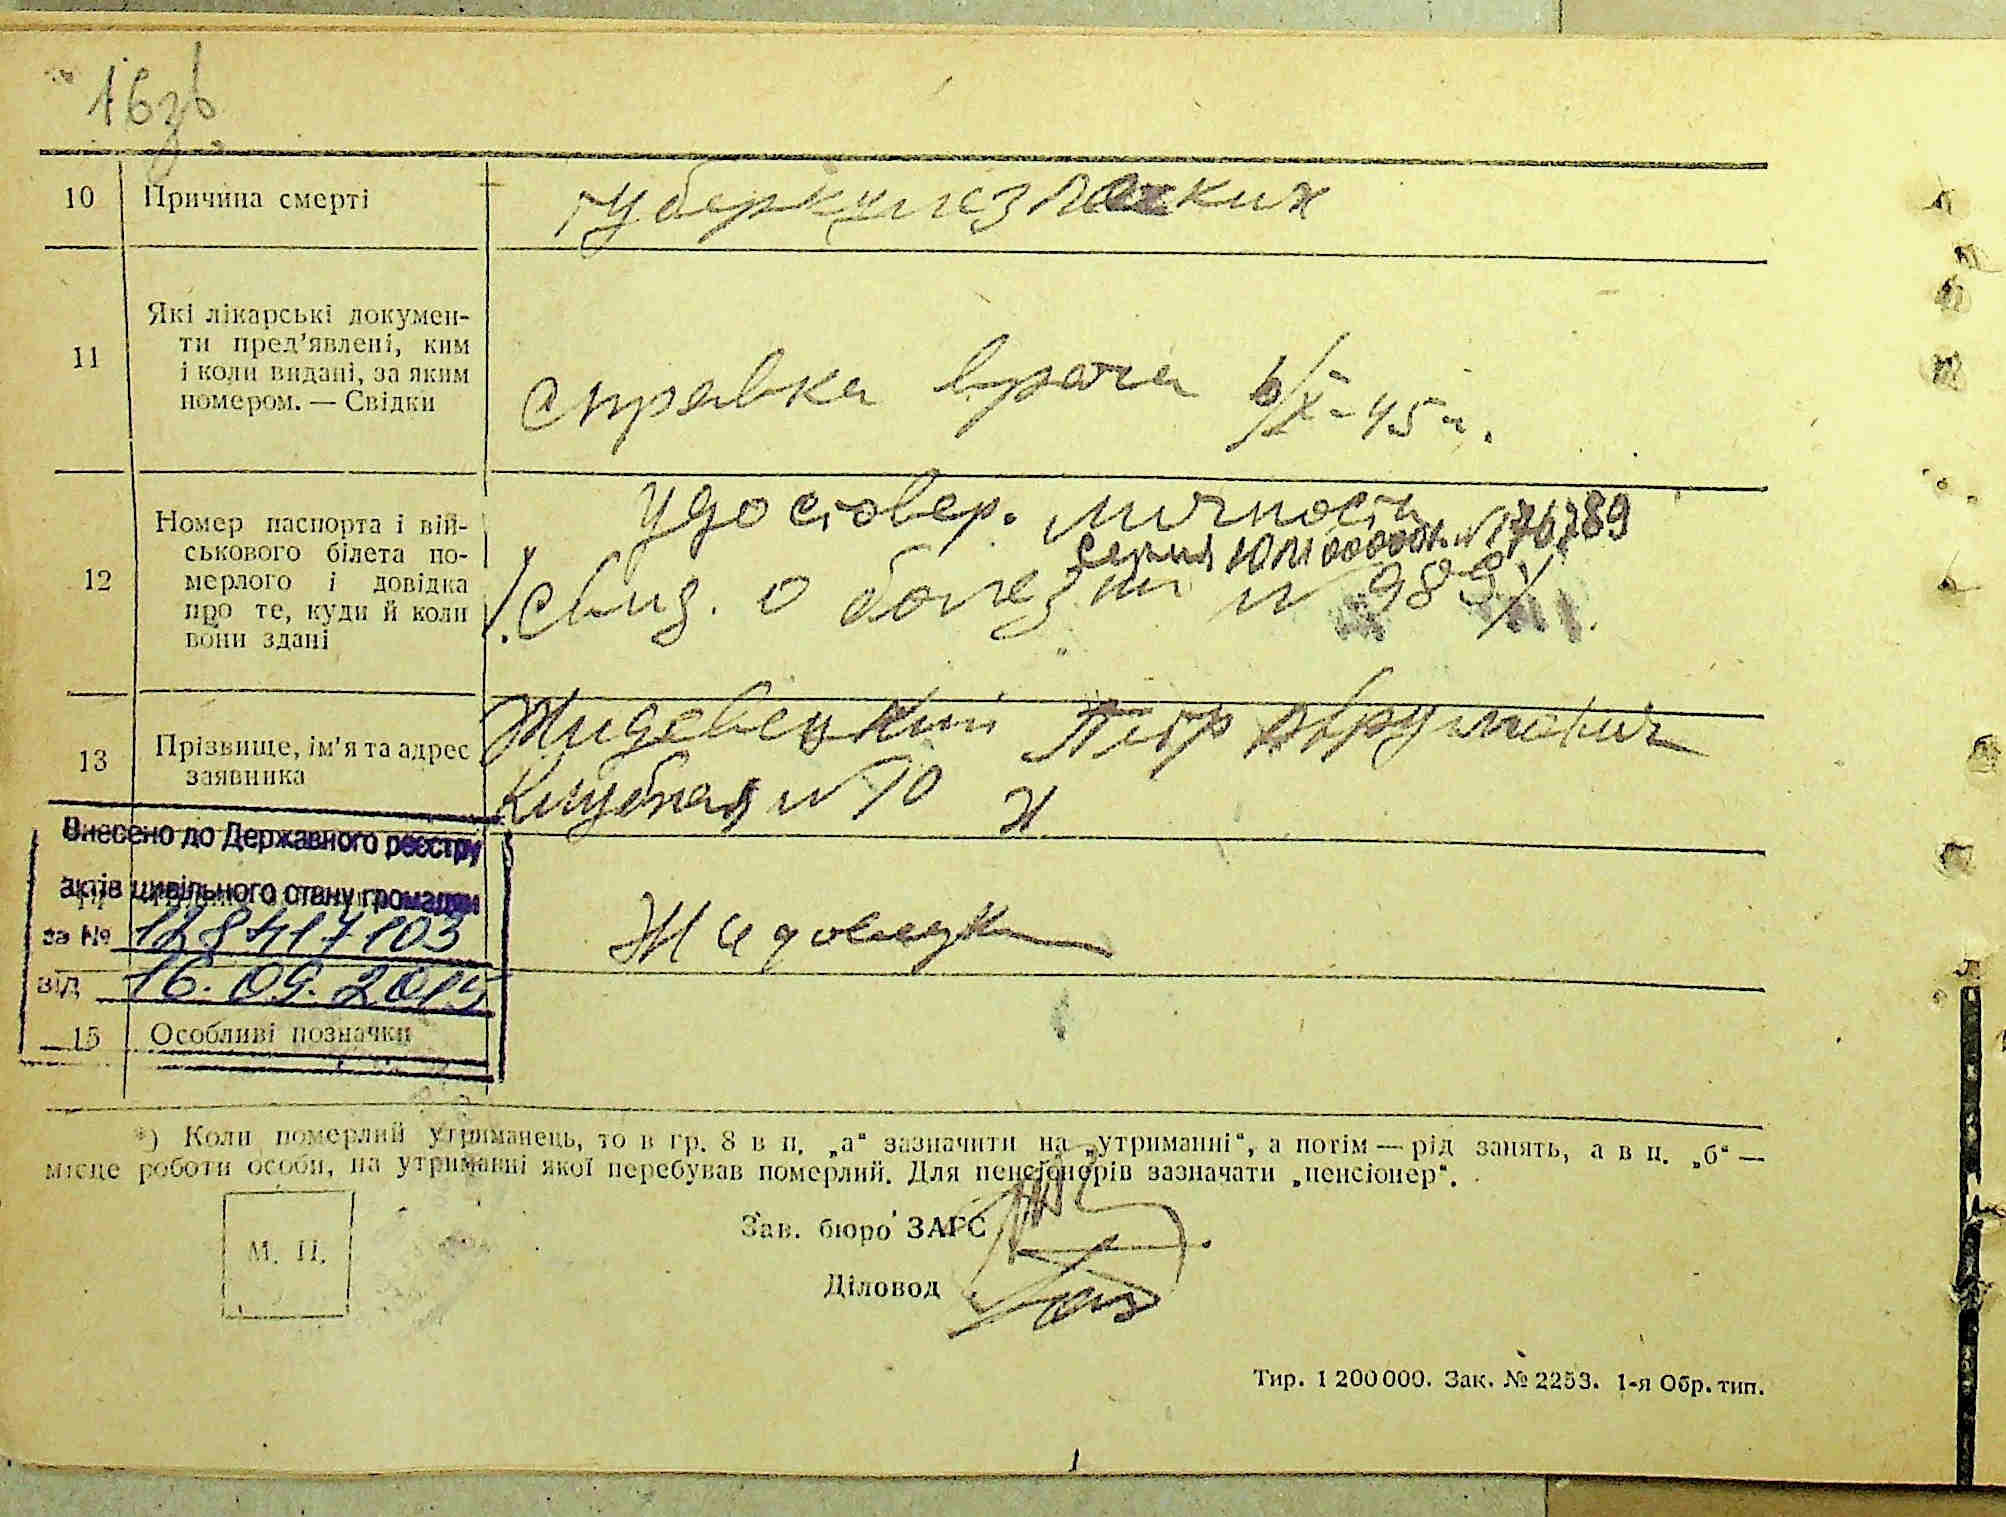 16зв
10 Причина смерті
туберкулез легких
11 Які лікарські докумен-
ти пред'явлені, ким
і коли видані, за яким
номером. — Свідки
справка врача 6/X-45 г.
12 Номер паспорта і вій-
ськового білета по-
мерлого і довідка
про те, куди й коли
вони здані
удостовер. личности
серия ЮЛ № 176789
свид. о болезни № 989
13 Прізвище, ім'я та адрес
заявника
Жидовецкий Петр
Клубная № 10
Внесено до Державного реєстру
актів цивільного стану громадян
за № 128417103
від 16.09.2015
15 Особливі позначки
*) Коли померлий утриманець, то в гр. 8 в п. „а“ зазначити на „утриманні“, а потім — рід занять, а в п. „б“ —
місце роботи особи, на утриманні якої перебував померлий. Для пенсіонерів зазначати „пенсіонер“.
М. П.
Зав. бюро ЗАГС
Діловод
Тир. 1 200 000. Зак. № 2253. 1-я Обр. тип.